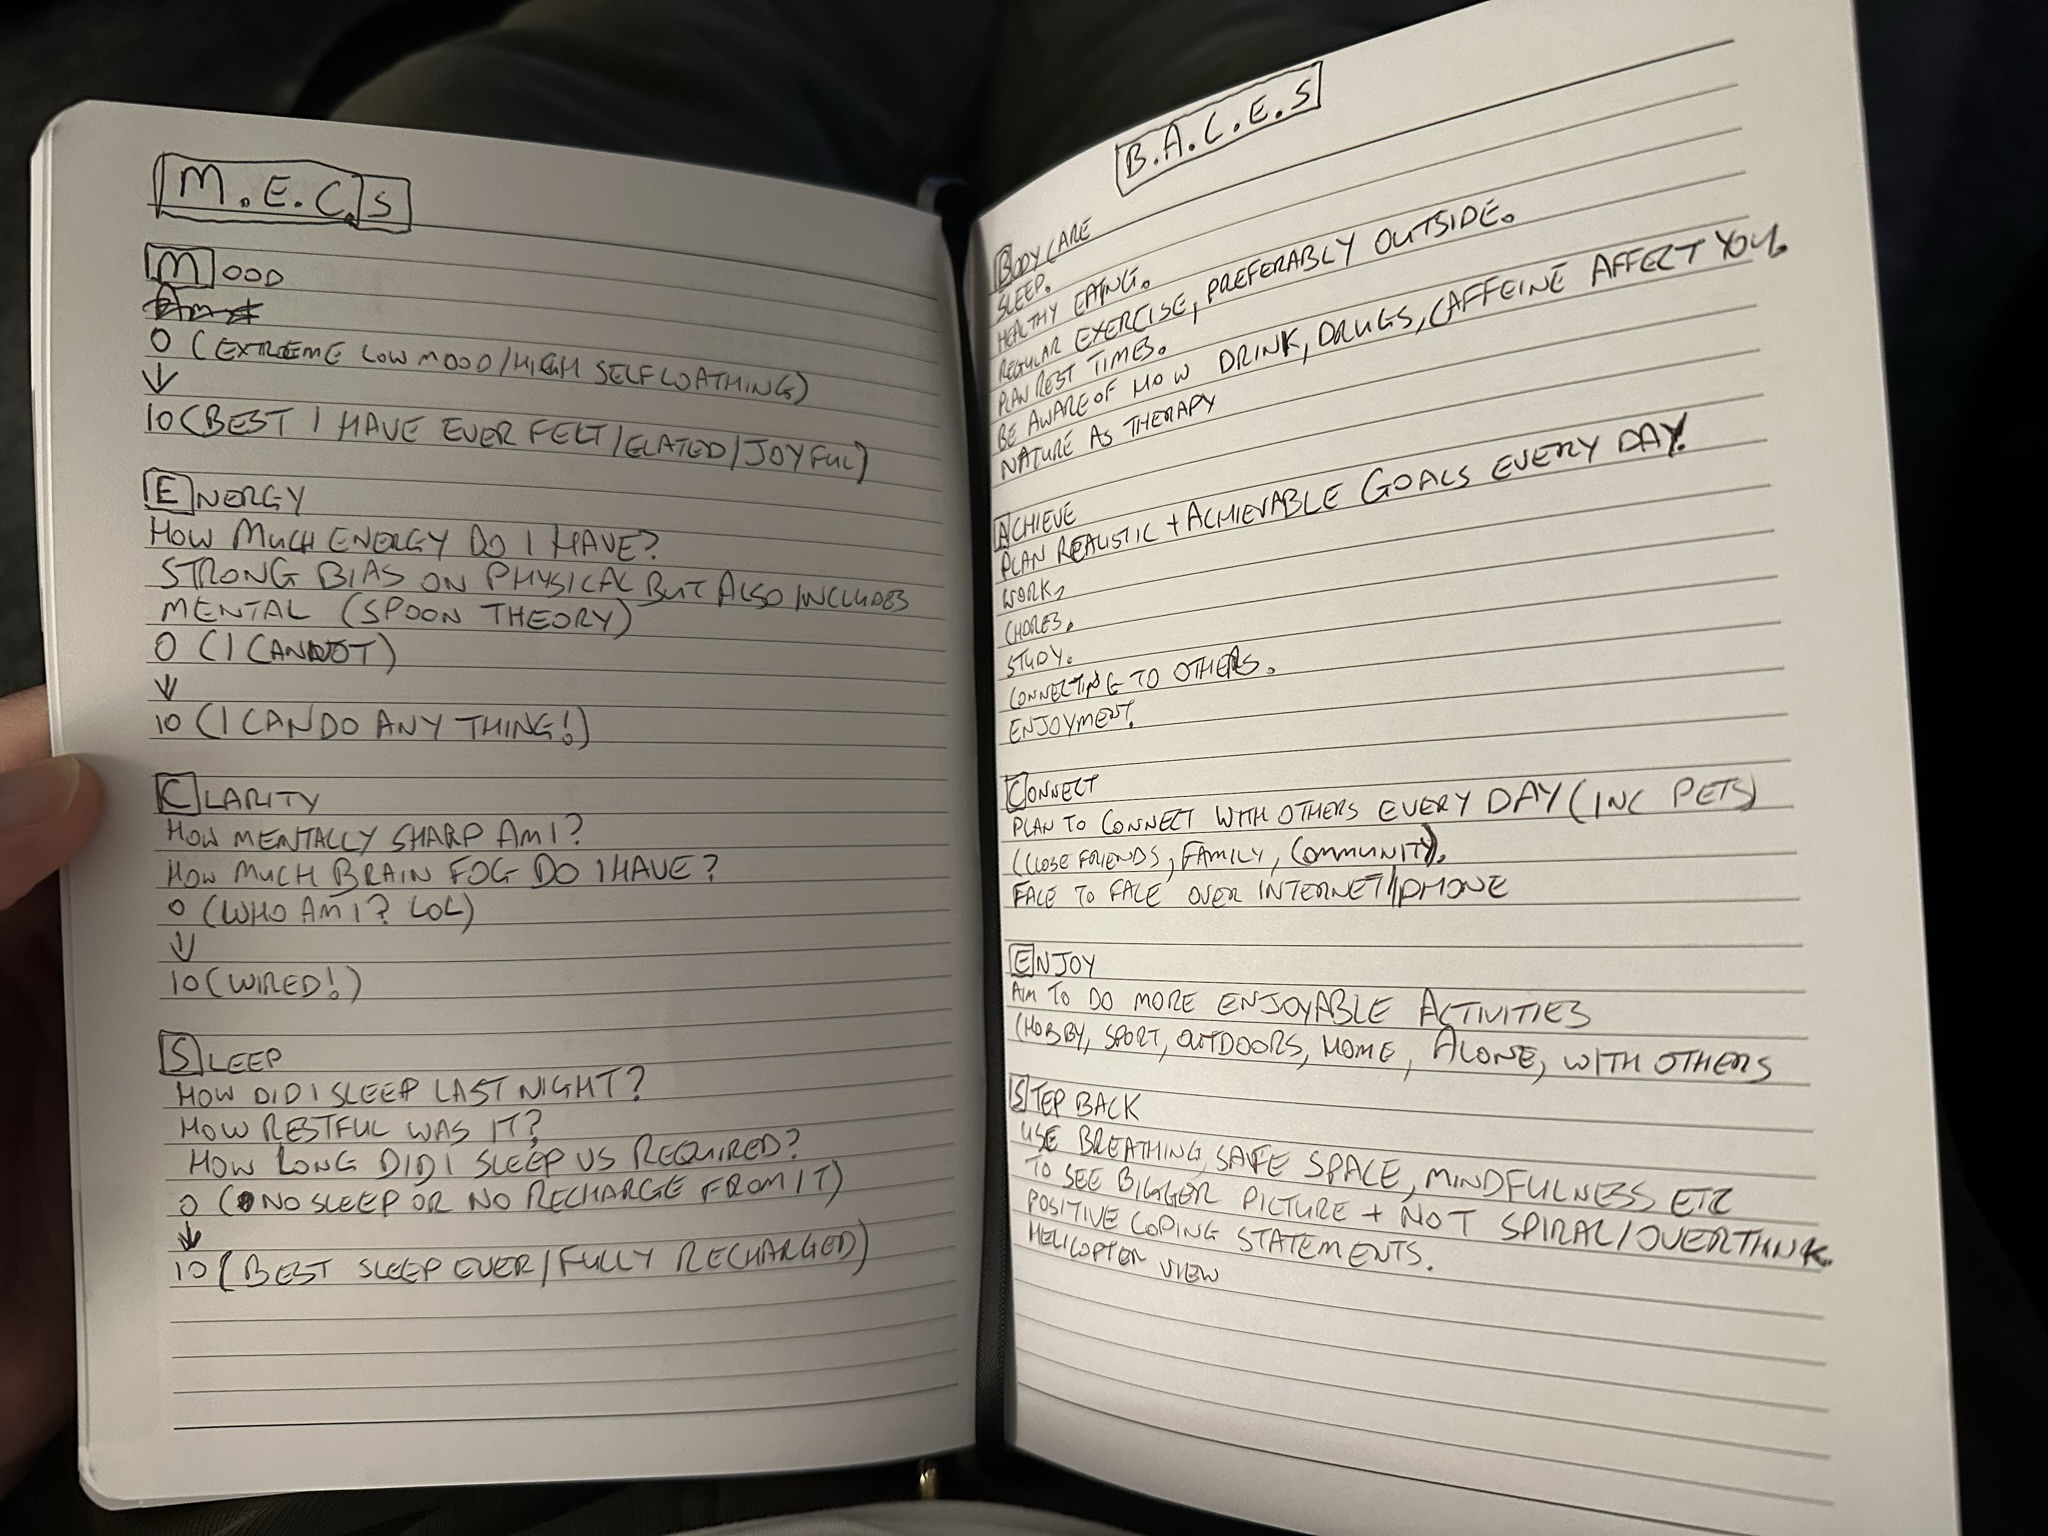 M.E.C.S
MOOD
0 (EXTREME LOW MOOD/HIGH SELF LOATHING)
↓
10 (BEST I HAVE EVER FELT/ELATED/JOYFUL)
ENERGY
HOW MUCH ENERGY DO I HAVE?
STRONG BIAS ON PHYSICAL BUT ALSO INCLUDES
MENTAL (SPOON THEORY)
0 (I CANNOT)
↓
10 (I CAN DO ANY THING!)
CLARITY
HOW MENTALLY SHARP AM I?
HOW MUCH BRAIN FOG DO I HAVE?
0 (WHO AM I? LOL)
↓
10 (WIRED!)
SLEEP
HOW DID I SLEEP LAST NIGHT?
HOW RESTFUL WAS IT?
HOW LONG DID I SLEEP VS REQUIRED?
0 (NO SLEEP OR NO RECHARGE FROM IT)
↓
10 (BEST SLEEP EVER/FULLY RECHARGED)
B.A.C.E.S
BODY CARE
SLEEP.
HEALTHY EATING.
REGULAR EXERCISE, PREFERABLY OUTSIDE.
PLAN REST TIMES.
BE AWARE OF HOW DRINK, DRUGS, CAFFEINE AFFECT YOU.
NATURE AS THERAPY
ACHIEVE
PLAN REALISTIC + ACHIEVABLE GOALS EVERY DAY.
WORK,
CHORES.
STUDY.
CONNECTING TO OTHERS.
ENJOYMENT.
CONNECT
PLAN TO CONNECT WITH OTHERS EVERY DAY (INC PETS)
(CLOSE FRIENDS, FAMILY, COMMUNITY).
FACE TO FACE OVER INTERNET/PHONE
ENJOY
AIM TO DO MORE ENJOYABLE ACTIVITIES
(HOBBY, SPORT, OUTDOORS, HOME, ALONE, WITH OTHERS
STEP BACK
USE BREATHING, SAFE SPACE, MINDFULNESS ETC
TO SEE BIGGER PICTURE + NOT SPIRAL/OVERTHINK.
POSITIVE COPING STATEMENTS.
HELICOPTER VIEW